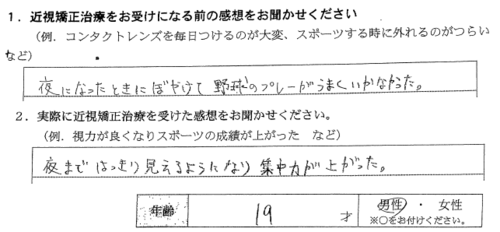 1．近視矯正治療をお受けになる前の感想をお聞かせください
(例．コンタクトレンズを毎日つけるのが大変、スポーツする時に外れるのがつらい
など)
夜になったときにぼやけて野球のプレーがうまくいかなかった。
2．実際に近視矯正治療を受けた感想をお聞かせください。
(例．視力が良くなりスポーツの成績が上がった など)
夜まではっきり見えるようになり集中力が上がった。
年齢 19 才 男性 ・ 女性
※○をお付けください。